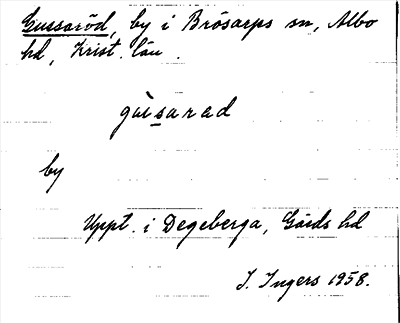 Gussaröd, by i Brösarps sn, Albo
hd, Krist. län.
gùsarad
by
Uppt. i Degeberga, Gärds hd
I. Ingers 1958.